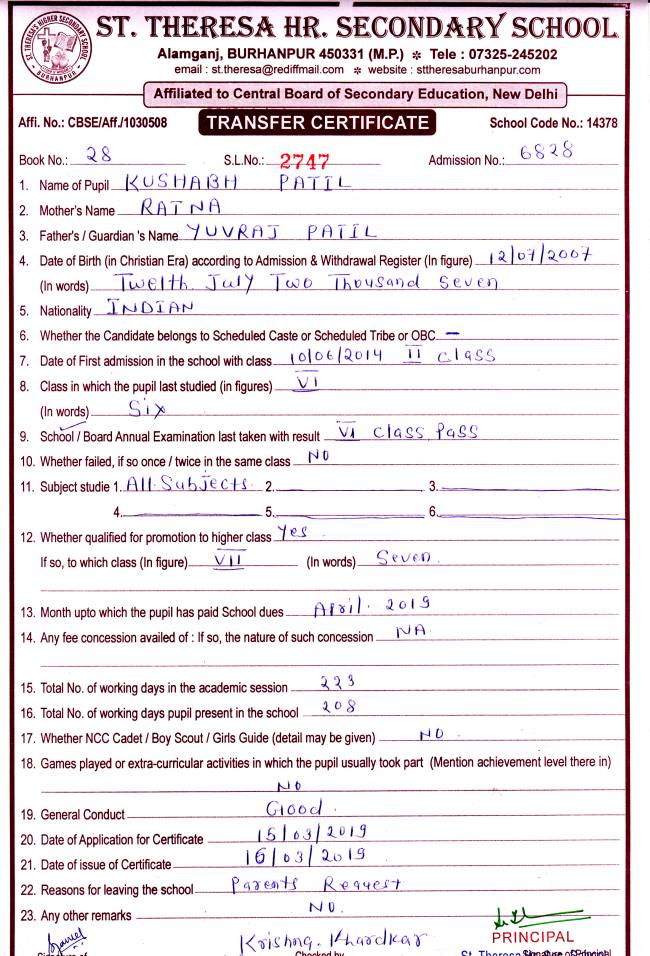 ST. THERESA HR. SECONDARY SCHOOL
Alamganj, BURHANPUR 450331 (M.P.) * Tele : 07325-245202
email : st.theresa@rediffmail.com * website : sttheresaburhanpur.com
ST. THERESA'S HIGHER SECONDARY SCHOOL
BURHANPUR
Affiliated to Central Board of Secondary Education, New Delhi
Affi. No.: CBSE/Aff./1030508 TRANSFER CERTIFICATE School Code No.: 14378
Book No.: 28 S.L.No.: 2747 Admission No.: 6828
1. Name of Pupil KUSHABH PATIL
2. Mother's Name RATNA
3. Father's / Guardian 's Name YUVRAJ PATIL
4. Date of Birth (in Christian Era) according to Admission & Withdrawal Register (In figure) 12/07/2007
(In words) Twelth July Two Thousand Seven
5. Nationality INDIAN
6. Whether the Candidate belongs to Scheduled Caste or Scheduled Tribe or OBC –
7. Date of First admission in the school with class 10/06/2014 II class
8. Class in which the pupil last studied (in figures) VI
(In words) Six
9. School / Board Annual Examination last taken with result VI Class Pass
10. Whether failed, if so once / twice in the same class NO
11. Subject studie 1. All Subjects 2. 3.
4. 5. 6.
12. Whether qualified for promotion to higher class Yes
If so, to which class (In figure) VII (In words) Seven.
13. Month upto which the pupil has paid School dues April. 2019
14. Any fee concession availed of : If so, the nature of such concession NA
15. Total No. of working days in the academic session 223
16. Total No. of working days pupil present in the school 208
17. Whether NCC Cadet / Boy Scout / Girls Guide (detail may be given) NO
18. Games played or extra-curricular activities in which the pupil usually took part (Mention achievement level there in)
NO
19. General Conduct Good.
20. Date of Application for Certificate 15/03/2019
21. Date of issue of Certificate 16/03/2019
22. Reasons for leaving the school Parents Request
23. Any other remarks NO.
Krishna. Khardkar PRINCIPAL
Checked by St. Theresa